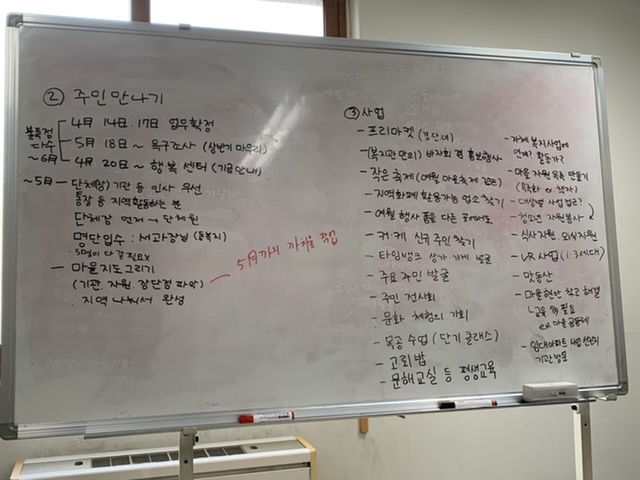 ② 주민만나기
불특정 다수 ~6月
4月 14日. 17日 업무확정
5月 18日 ~ 욕구조사 (상반기 마무리)
4月 20日 ~ 행복 센터 (기급안내)
~5月 - 단체(장) 기관 등 인사 우선
통장 등 지역활동하는 분
단체장 먼저 → 단체원
명단입수 : 서과장님
5명이 다 갈 필요 X
- 마을지도그리기
(기관. 자원. 장단점 파악)
: 지역 나눠서 완성
5月까지
③ 사업
- 프리마켓
(복지관 만의) 바자회 겸 홍보행사
- 작은 축제
- 지역화폐 활용가능 업소 찾기
- 여월 행사 품을 다른 곳에서도
- 커.케 신규 주민 찾기
- 타임뱅크 상가.가게 발굴
- 주요 주민 발굴
- 주민 전시회
- 문화 체험의 기회
- 목공 수업 (단기 클래스)
- 고리밥
- 문해교실 등 평생교육
- 자체 복지사업에
언제? 활동가?
- 마을 자원 목록 만들기
- 대상별 사업 접근?
- 청소년 자원봉사
- 식사지원. 외식지원
- VR 사업 (1.3세대)
- 맛동산
- 마을현안 찾고 해결
ㄴ교육 必 필요
ex 마을공동체
- 임대아파트 사업
기관방문